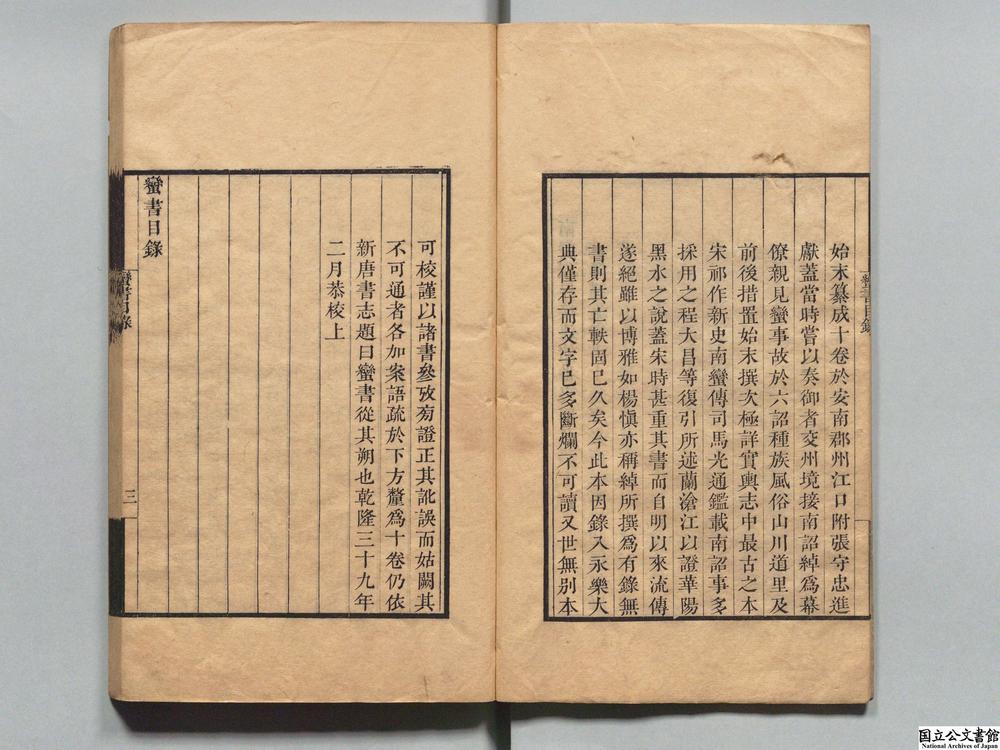 始末纂成十卷於安南郡州江口附張守忠進
獻蓋當時嘗以奏御者交州境接南詔綽爲幕
僚親見蠻事故於六詔種族風俗山川道里及
前後措置始末撰次極詳實輿志中最古之本
宋祁作新史南蠻傳司馬光通鑑載南詔事多
採用之程大昌等復引所述蘭滄江以證華陽
黑水之說蓋宋時甚重其書而自明以來流傳
遂絕雖以博雅如楊愼亦稱綽所撰爲有錄無
書則其亡軼固已久矣今此本因錄入永樂大
典僅存而文字已多斷爛不可讀又世無別本
可校謹以諸書參攷旁證正其訛誤而姑闕其
不可通者各加案語疏於下方釐爲十卷仍依
新唐書志題曰蠻書從其朔也乾隆三十九年
二月恭校上
蠻書目錄
蠻書目錄
三
蠻書目錄
国立公文書館
National Archives of Japan